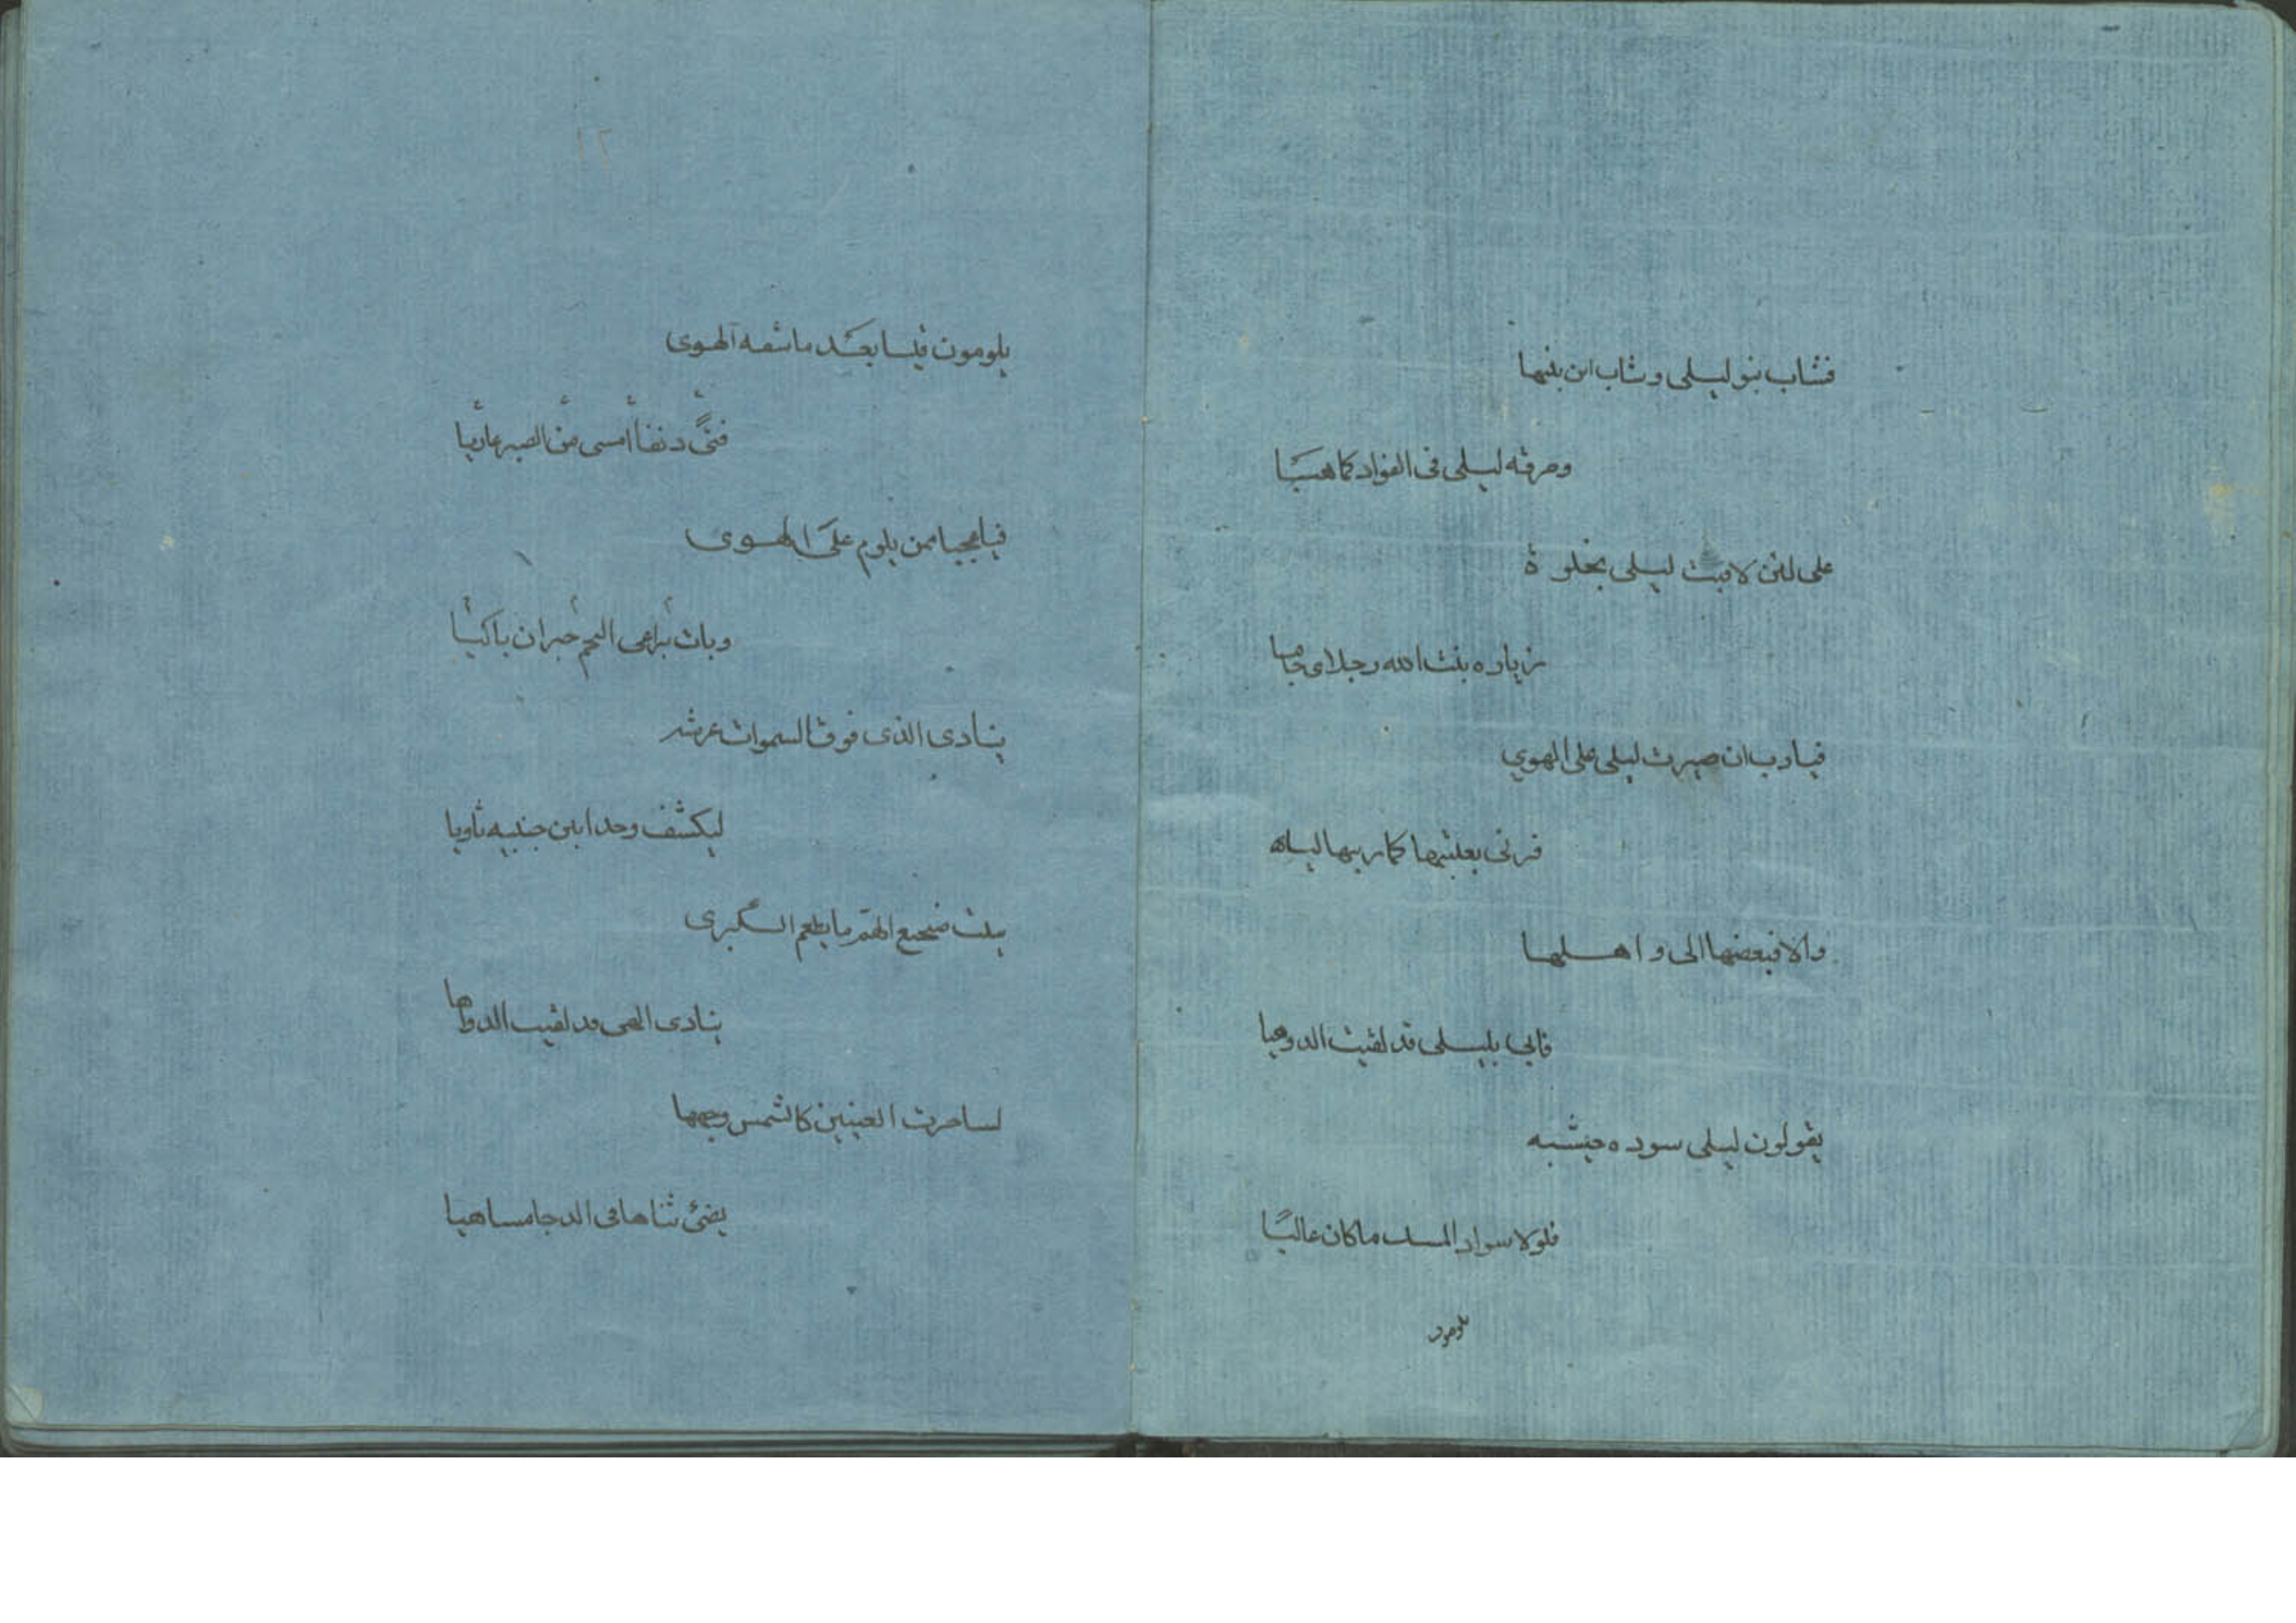 فشاب بنو ليلى وشاب ابن بنيها
وحرقه ليلى فى الفواد كما هيـًا
على لئن لاقيت ليلى بخلوة
زياره بيت الله رجلاى حافيا
فيارب ان صيرت ليلى على الهوي
فزنى بعينيها كما زينها ليا
والا فبعضها الى واهلها
فانى بليلى قد لقيت الدوهيا
يقولون ليلى سوده حبشيه
فلولا سواد المسك ما كان غاليًا
يلومون
١٢
يلومون قيسا بعد ما شفه الهوى
فتىً دنفا امسى من الصبر عاريا
فيا عجبا ممن يلوم على الهوى
وبات يراعى النجم حيران باكيا
ينادى الذى فوق السموات عرشه
ليكشف وجدا بين جنبيه ثاويا
يبيت ضجيع الهم ما يطعم الكرى
ينادى الهى قد لقيت الدواهيا
لساحرت العينين كالشمس وجهها
يضئ ثناها فى الدجا مساهيا